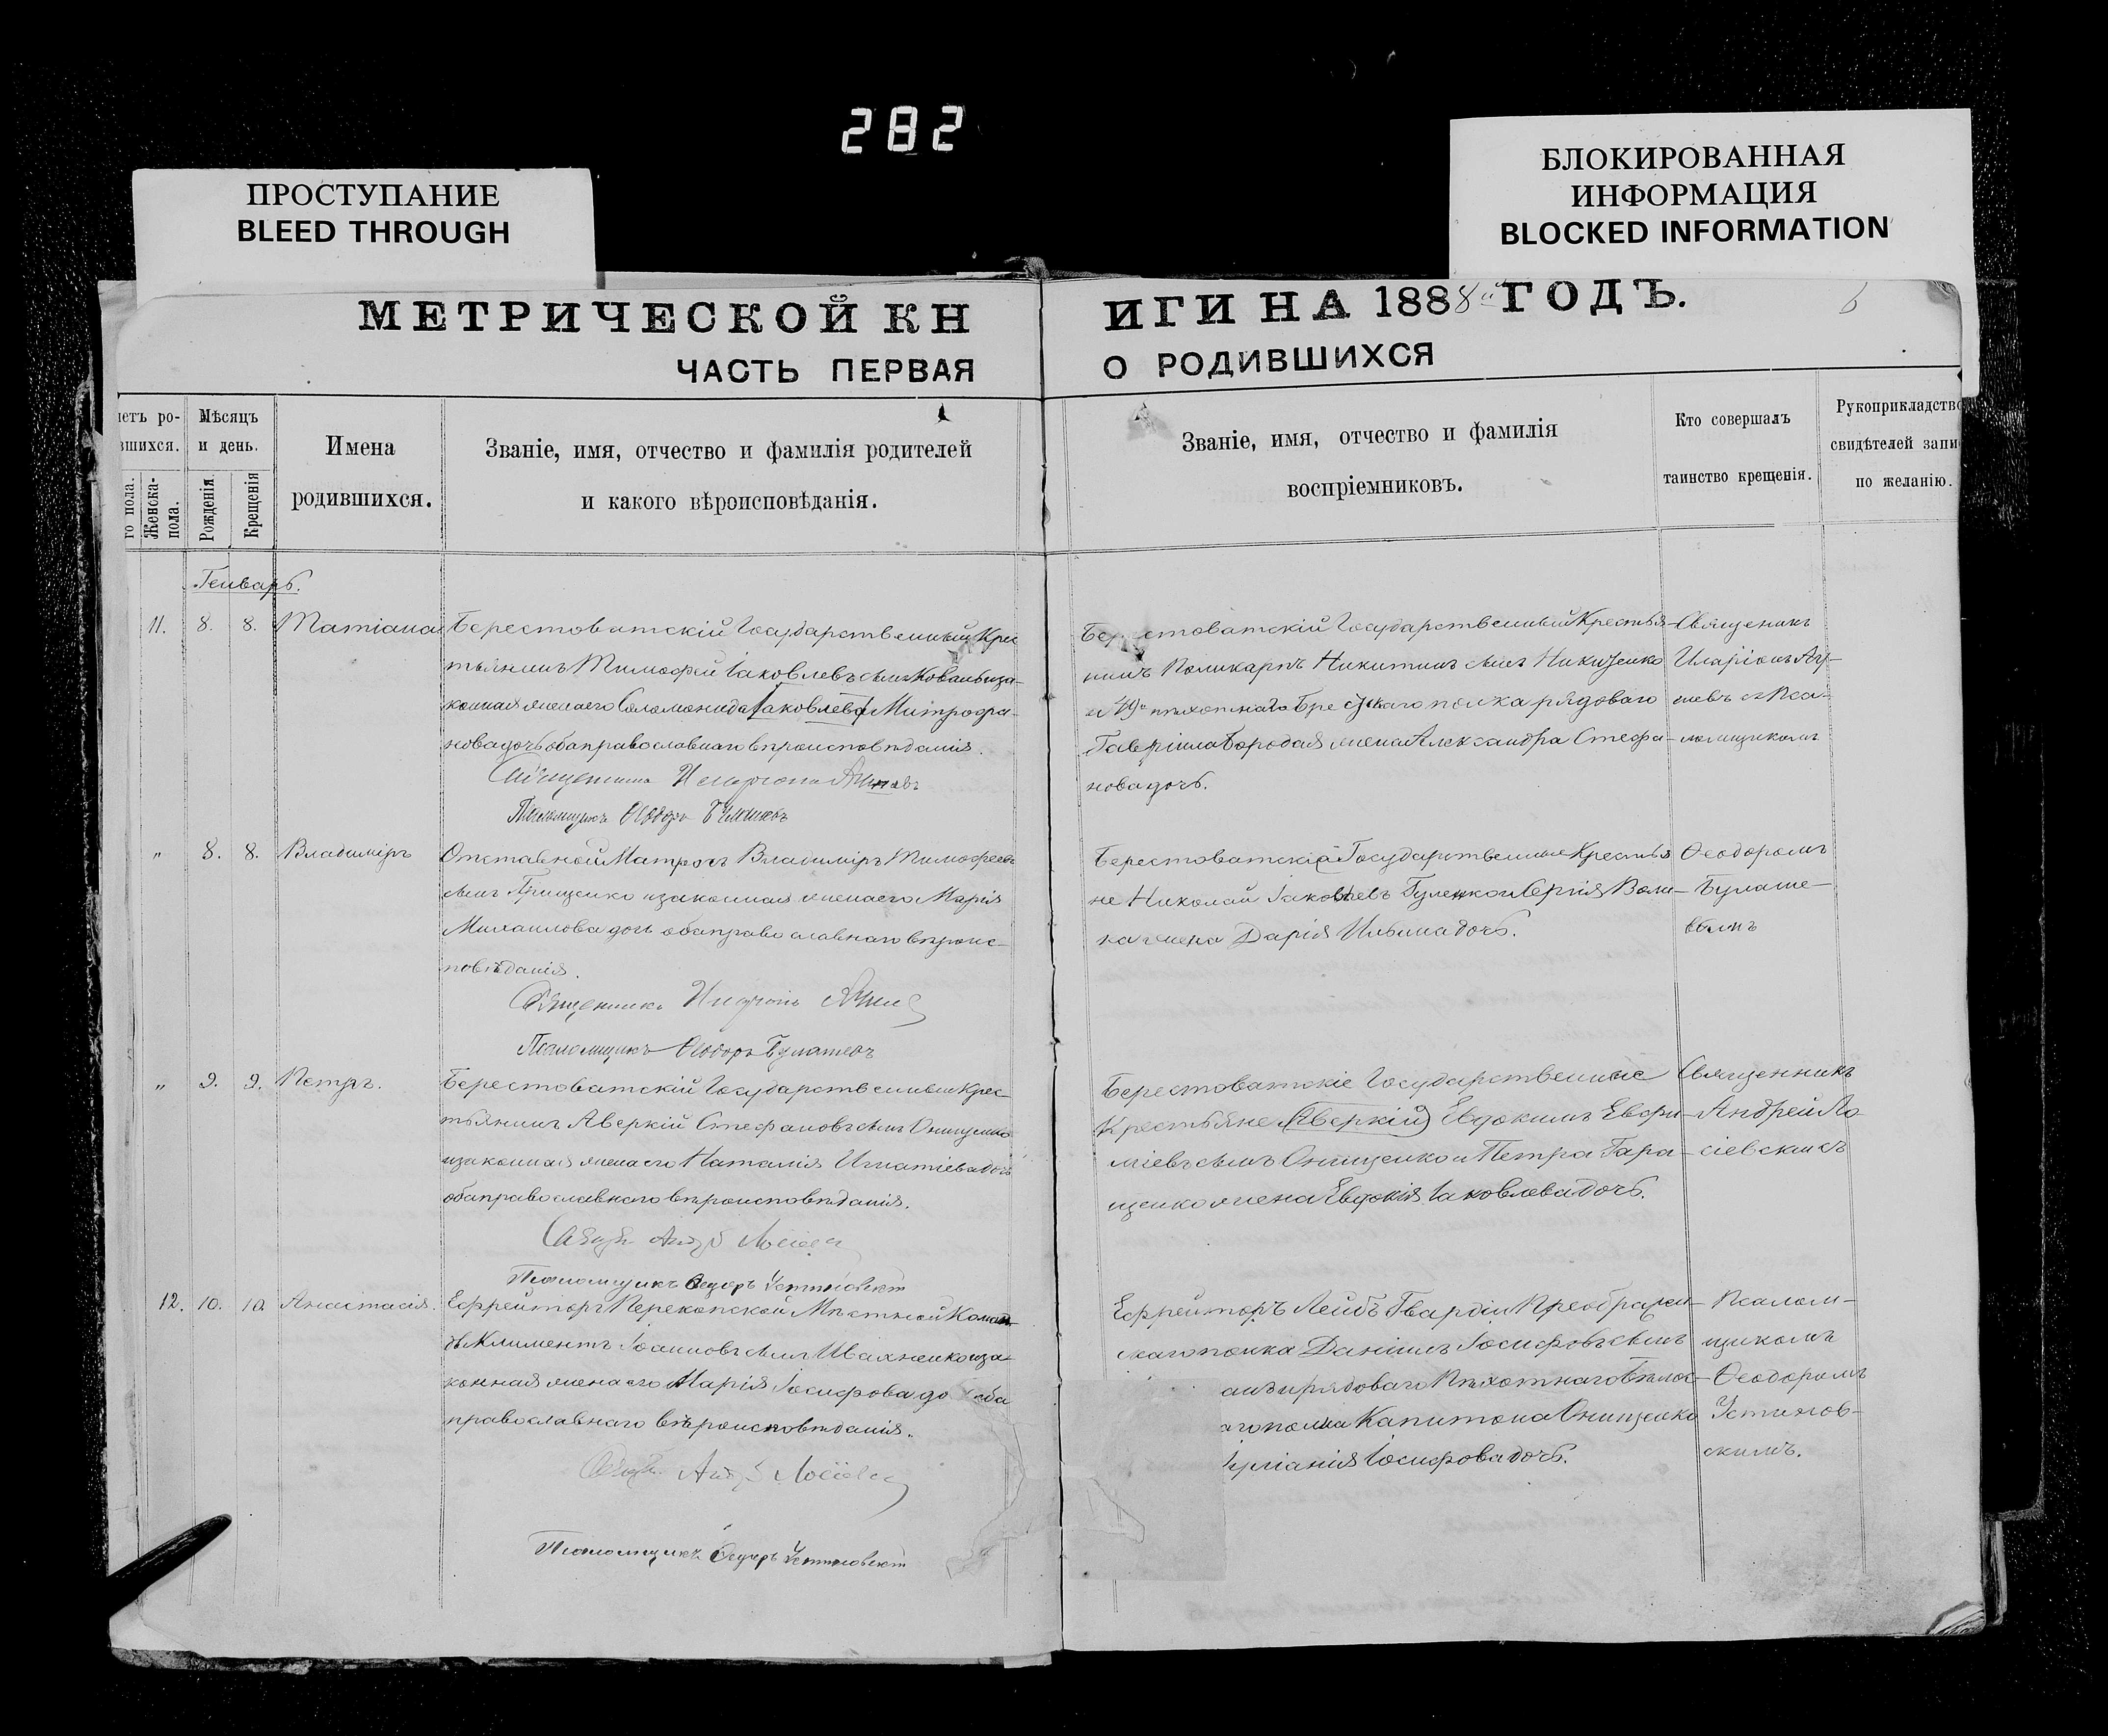 282
ПРОСТУПАНИЕ
BLEED THROUGH
БЛОКИРОВАННАЯ
ИНФОРМАЦИЯ
BLOCKED INFORMATION
МЕТРИЧЕСКОЙ КНИГИ НА 1888й ГОДЪ.
6
ЧАСТЬ ПЕРВАЯ О РОДИВШИХСЯ
четъ ро-
вшихся.
го пола.
Женска-
пола.
Мѣсяцъ
и день.
Рожденія.
Крещенія
Имена
родившихся.
Званіе, имя, отчество и фамилія родителей
и какого вѣроисповѣданія.
Званіе, имя, отчество и фамилія
воспріемниковъ.
Кто совершалъ
таинство крещенія.
Рукоприкладство
свидѣтелей запи
по желанію.
Генварь.
11. 8. 8. Татіана
Берестоватскій Государственный Крес
тьянинъ Тимофей Іаковлевъ сынъ Коваль иза-
конная жена его Соломонида Іаковлева Митрофа-
нова дочь оба православнаго вѣроисповѣданія.
Псаломщикъ Ѳеодоръ
Берестоватскій Государственный Крестья-
нинъ Поликарпъ Никитинъ сынъ Никиценко
и 49го пѣхотнаго Брестскаго полка рядоваго
Гавріила Бородая жена Александра Стефа-
нова дочь.
Священникъ
Иларіонъ Ку-
шевъ съ Пса-
ломщикомъ
" 8. 8. Владиміръ
Отставной Матросъ Владиміръ Тимофеевъ
сынъ Грищенко изаконная жена его Марія
Михаилова дочь оба православнаго вѣроис-
повѣданія.
Священникъ
Псаломщикъ Ѳеодоръ Булашев
Берестоватскіе Государственные Крестья
не Николай Іаковлевъ Гуленко и Сергія Воли-
ка жена Дарія Ильина дочь.
Ѳеодоромъ
Булаше-
вымъ
" 9. 9. Петръ.
Берестоватскій Государственный Крес-
тьянинъ Аверкій Стефановъ сынъ Онищенко
изаконная жена его Наталія Игнатіева дочь
оба православнаго вѣроисповѣданія.
Псаломщикъ Ѳедоръ Устиновскій
Берестоватскіе Государственные
Крестьяне (Аверкій) Евдокимъ Евфи-
міевъ сынъ Онищенко и Петра Гара-
щенко жена Евдокія Іаковлева дочь.
Священникъ
Андрей Ло
сіевскимъ
12. 10. 10. Анастасія.
Ефрейторъ Перекопской Мѣстной Коман-
ды Климентъ Іоанновъ сынъ Ивахненко иза-
конная жена его Марія Іосифова до оба
православнаго вѣроисповѣданія.
Псаломщикъ Ѳедоръ Устиновскій
Ефрейторъ Лейбъ Гвардіи Преображен-
скаго полка Даніилъ Іосифовъ сынъ
рядоваго Пѣхотнаго Бѣлос-
аго полка Капитона Онищенко
Іосифова дочь.
Псалом-
щикомъ
Ѳеодоромъ
Устинов-
скимъ.